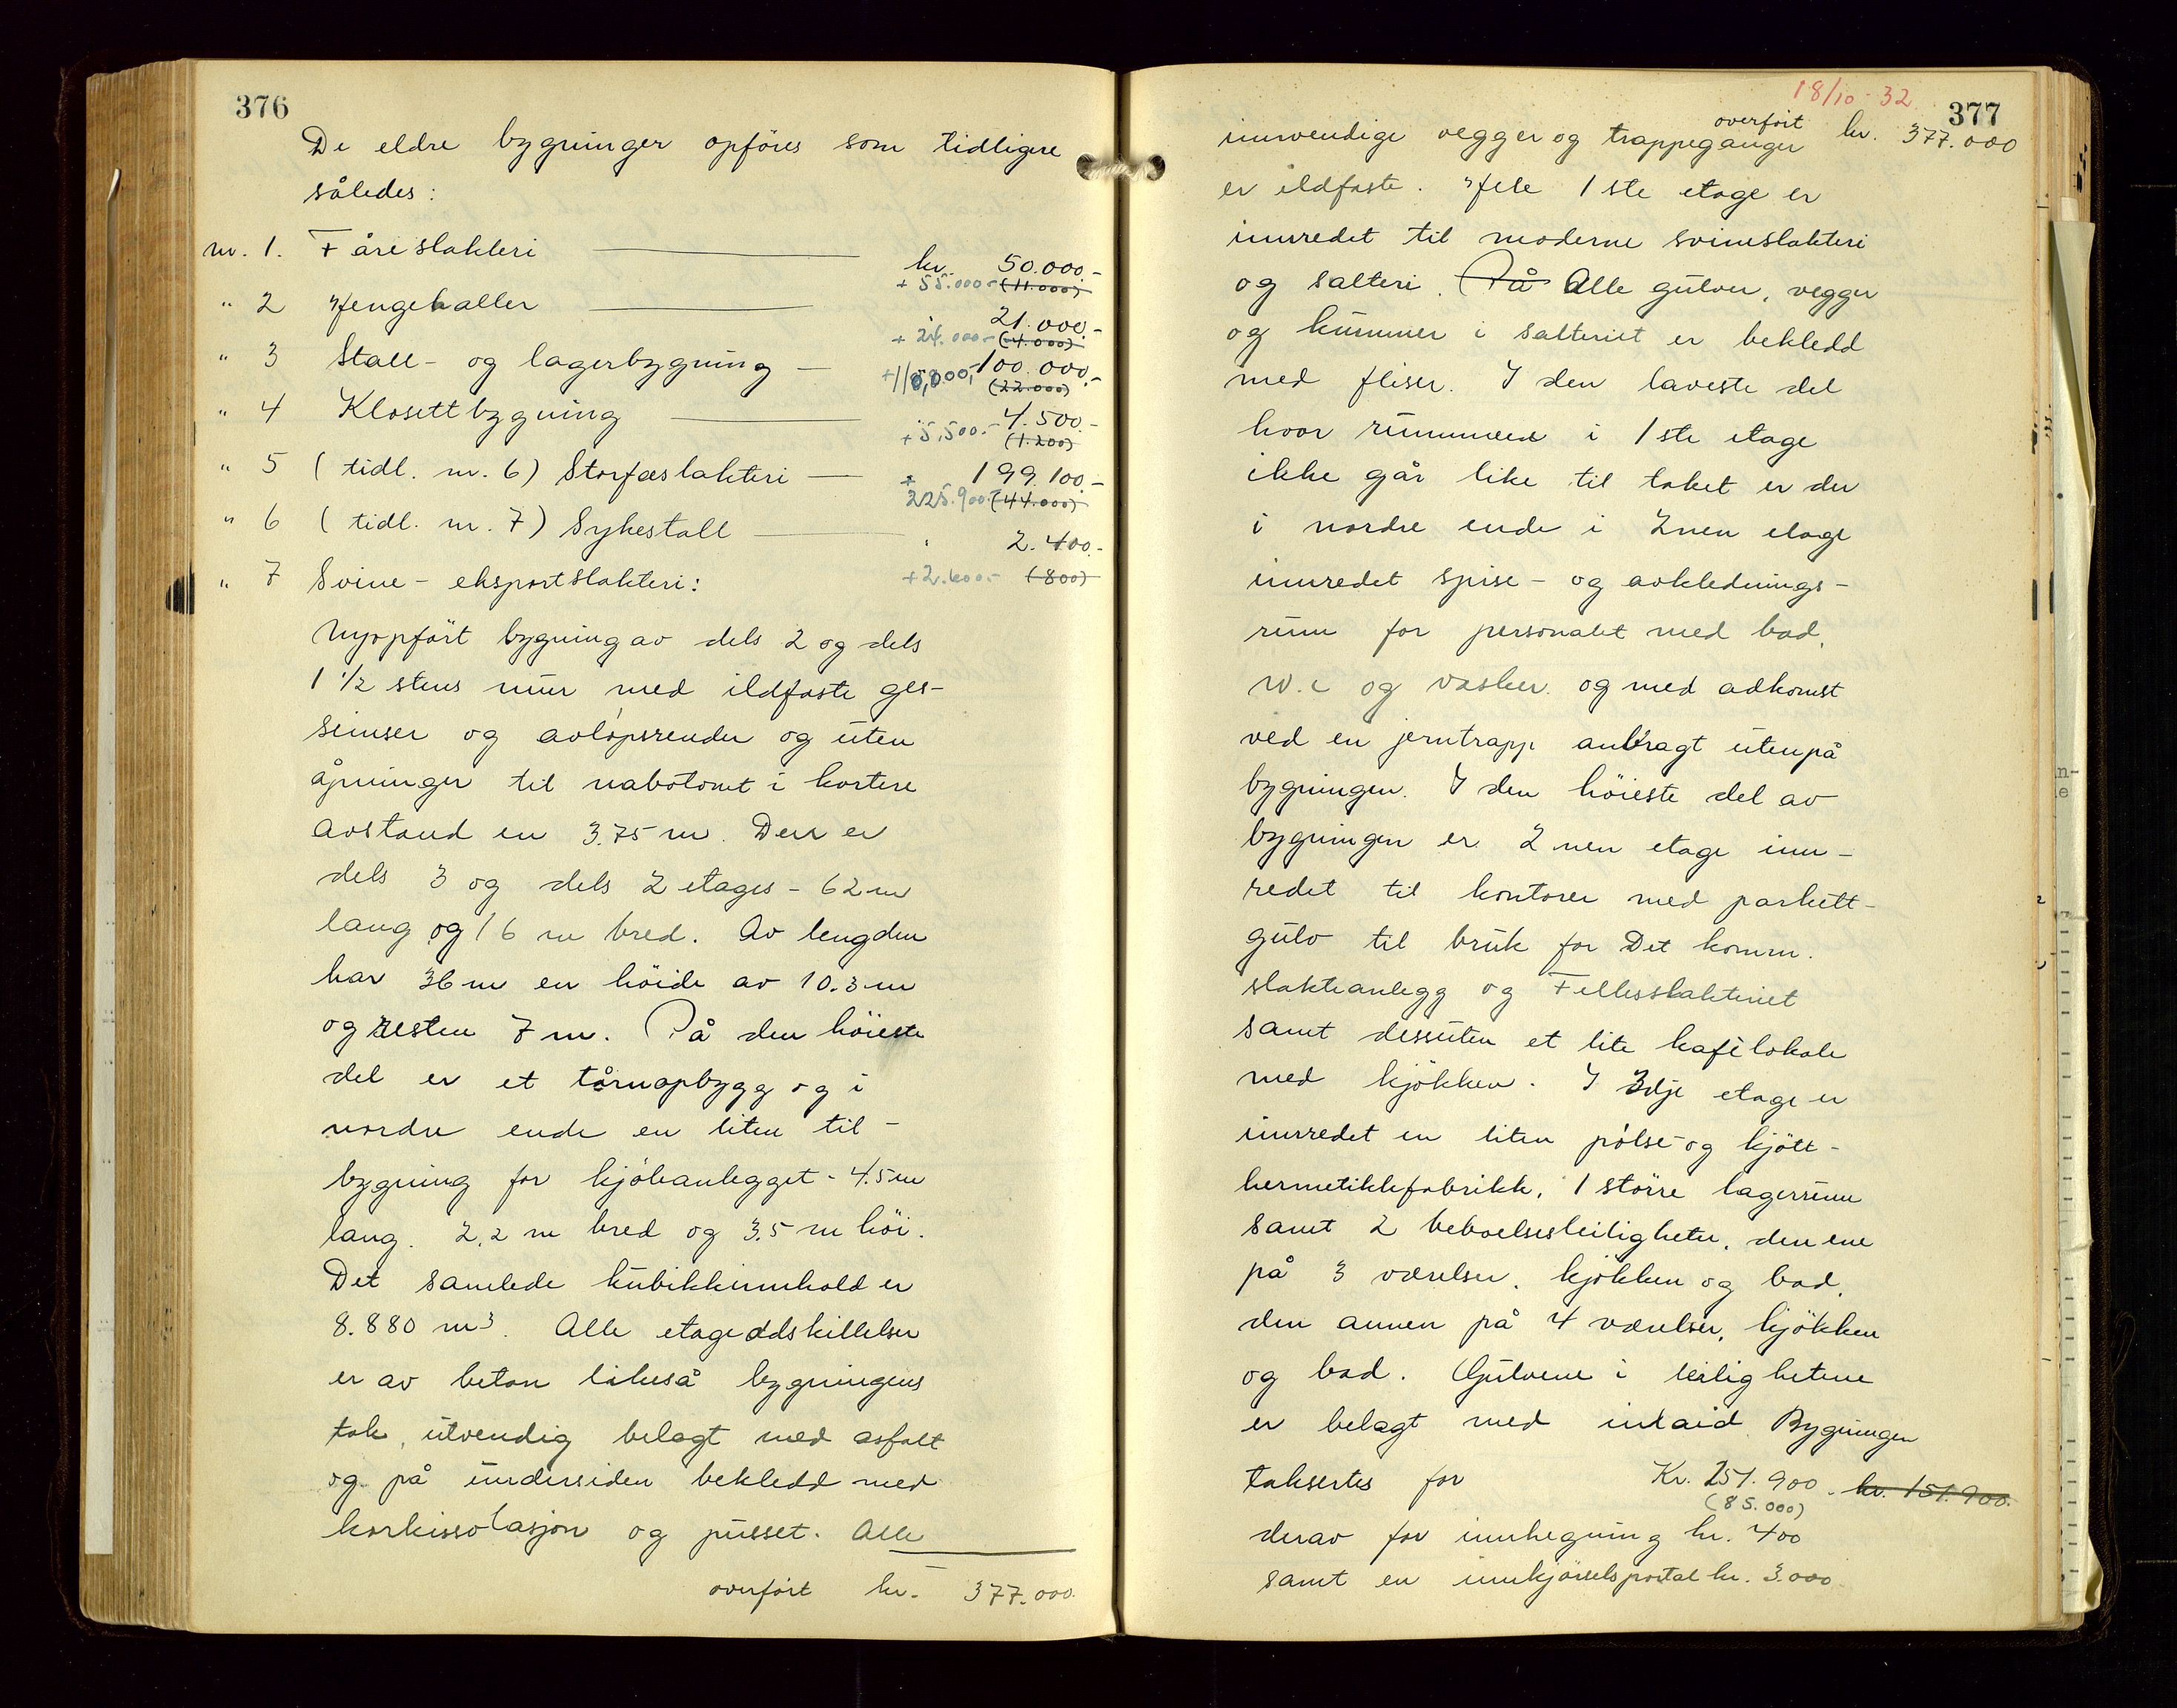 376
De eldre bygninger opföres som tidligere
således:
nr. 1. Fåreslakteri kr. 50.000.-
+ 55.000.- (11.000)
" 2 Hengehaller " 21.000.-
+ 24.000.- (4.000)
" 3 Stall- og lagerbygning 100.000.-
(22.000)
" 4 Klosettbygning 4.500.-
+ 5,500.- (1.200)
" 5 (tidl. nr. 6) Storfæslakteri 199.100.-
+ 225.900.- (44.000)
" 6 (tidl. nr. 7) Sykestall " 2.400.-
+ 2.600.- (800)
" 7 Svine-eksportslakteri:
Nyopfört bygning av dels 2 og dels
1 1/2 stens mur med ildfaste ges-
simser og avlöpsrender og uten
åpninger til nabotomt i kortere
avstand en 3.75 m. Den er
dels 3 og dels 2 etages - 62 m
lang og 16 m bred. Av lengden
har 36 m en höide av 10.3 m
og resten 7 m. På den höieste
del er et tårnopbygg og i
nordre ende en liten til-
bygning for kjöleanlegget - 4.5 m
lang. 2,2 m bred og 3.5 m höi.
Det samlede kubikkinnhold er
8.880 m3. Alle etageadskillelser
er av beton likeså bygningens
tak, utvendig belagt med asfalt
og på undersiden bekledd med
korkissolasjon og pusset. Alle
overfört kr. 377.000.
18/10-32
377
overfört kr. 377.000
innvendige vegger og trappeganger
er ildfaste. Hele 1ste etage er
innredet til moderne svineslakteri
og salteri. På Alle gulver, vegger
og kummer i salteriet er bekledd
med fliser. I den laveste del
hvor rummene i 1ste etage
ikke går like til taket er der
i nordre ende i 2nen etage
innredet spise- og avklednings-
rum for personalet med bad,
W.c og vasker og med adkomst
ved en jerntrapp anbragt utenpå
bygningen. I den höieste del av
bygningen er 2nen etage inn-
redet til kontorer med parkett-
gulv til bruk for Det komm.
slakteanlegg og Fellesslakteriet
samt dessuten et lite kafélokale
med kjökken. I 3dje etage er
innredet en liten pölse- og kjött-
hermetikkfabrikk, 1 större lagerrum
samt 2 beboelsesleiligheter, den ene
på 3 værelser, kjökken og bad,
den annen på 4 værelser, kjökken
og bad. Gulvene i leilighetene
er belagt med inlaid. Bygningen
taksertes for Kr. 251.900. kr. 151.900.
(85.000)
derav for innhegning kr. 400
samt en innkjörselsportal kr. 3.000.